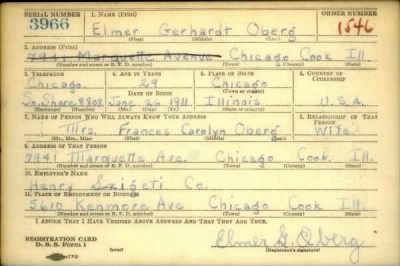 SERIAL NUMBER 1. NAME (Print) ORDER NUMBER
3966 Elmer Gerhardt Oberg 1546
(First) (Middle) (Last)
2. ADDRESS (Print)
7941 Marquette Avenue Chicago Cook Ill.
(Number and street or R. F. D. number) (Town) (County) (State)
3. TELEPHONE 4. AGE IN YEARS 5. PLACE OF BIRTH 6. COUNTRY OF CITIZENSHIP
Chicago 29 Chicago
DATE OF BIRTH
So. Shore 8808 June 26 1911 Illinois U.S.A.
(Exchange) (Number) (Mo.) (Day) (Yr.) (State or country)
7. NAME OF PERSON WHO WILL ALWAYS KNOW YOUR ADDRESS 8. RELATIONSHIP OF THAT PERSON
Mrs. Frances Carolyn Oberg Wife
(Mr., Mrs., Miss) (First) (Middle) (Last)
9. ADDRESS OF THAT PERSON
7941 Marquette Ave. Chicago Cook Ill.
(Number and street or R. F. D. number) (Town) (County) (State)
10. EMPLOYER'S NAME
Henry Szigeti Co.
11. PLACE OF EMPLOYMENT OR BUSINESS
5610 Kenmore Ave Chicago Cook Ill
(Number and street or R. F. D. number) (Town) (County) (State)
I AFFIRM THAT I HAVE VERIFIED ABOVE ANSWERS AND THAT THEY ARE TRUE.
REGISTRATION CARD
D. S. S. Form 1
(over)
Elmer G. Oberg
(Registrant's signature)